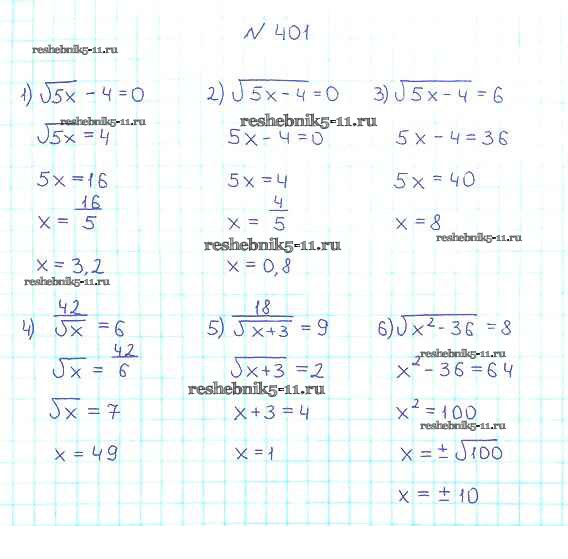 № 401
reshebnik5-11.ru
1) √5x - 4 = 0
reshebnik5-11.ru
√5x = 4
5x = 16
x = 16/5
x = 3,2
reshebnik5-11.ru
2) √5x - 4 = 0
reshebnik5-11.ru
5x - 4 = 0
5x = 4
x = 4/5
reshebnik5-11.ru
x = 0,8
3) √5x - 4 = 6
5x - 4 = 36
5x = 40
x = 8
reshebnik5-11.ru
4) 42/√x = 6
√x = 42/6
√x = 7
x = 49
5) 18/√x+3 = 9
√x+3 = 2
reshebnik5-11.ru
x + 3 = 4
x = 1
6) √x² - 36 = 8
reshebnik5-11.ru
x² - 36 = 64
x² = 100
reshebnik5-11.ru
x = ± √100
x = ± 10